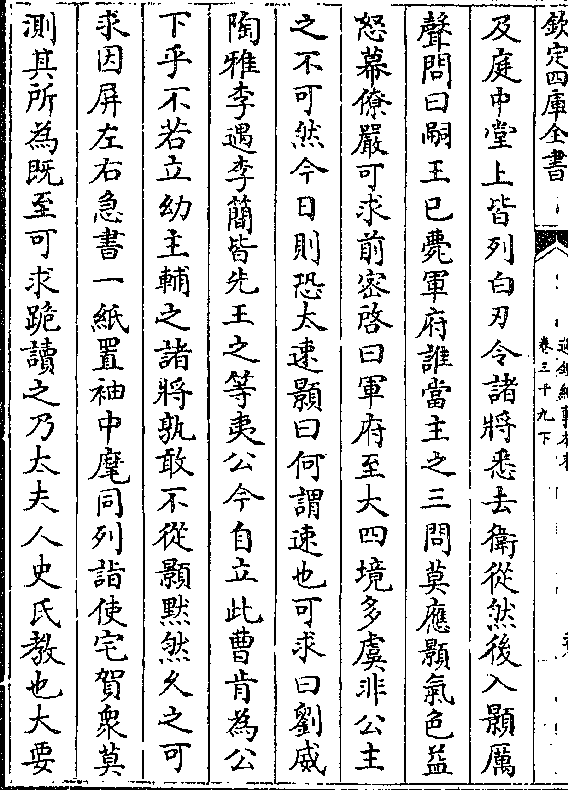 欽定四庫全書
通鑑紀事本末
卷三十九下
及庭中堂上皆列白刃令諸將悉去衛從然後入顥厲
聲問曰嗣王已薨軍府誰當主之三問莫應顥氣色益
怒幕僚嚴可求前密啓曰軍府至大四境多虞非公主
之不可然今日則恐太速顥曰何謂速也可求曰劉威
陶雅李遇李簡皆先王之等夷公今自立此曹肯為公
下乎不若立幼主輔之諸將孰敢不從顥黙然久之可
求因屏左右急書一紙置袖中麾同列詣使宅賀衆莫
測其所為既至可求跪讀之乃太夫人史氏教也大要